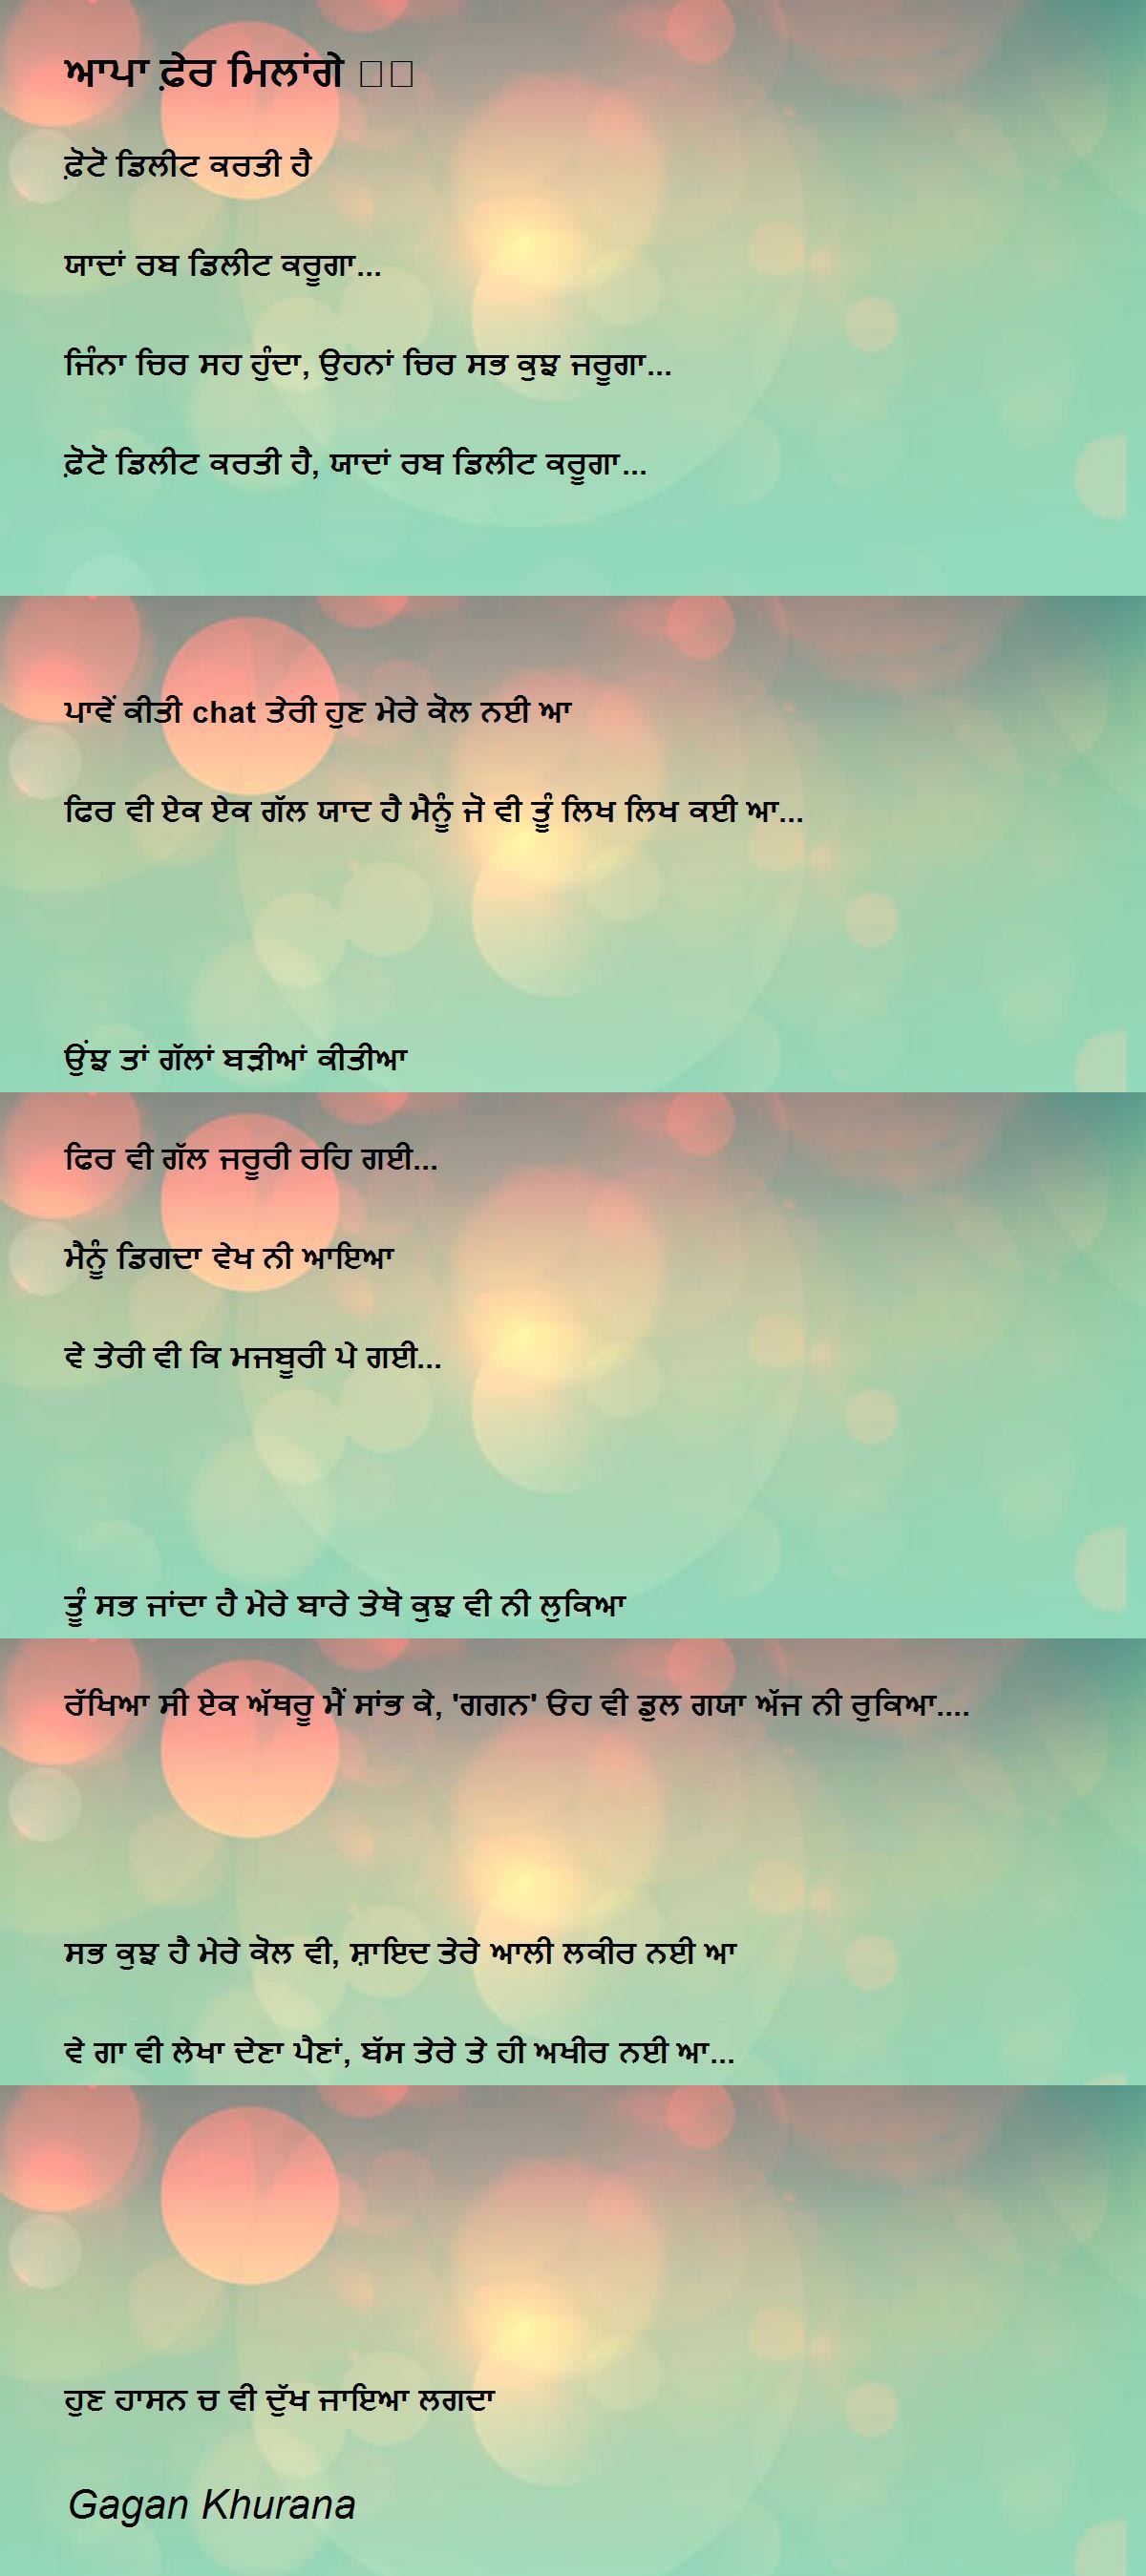 ਆਪਾ ਫ਼ੇਰ ਮਿਲਾਂਗੇ
ਫ਼ੋਟੋ ਡਿਲੀਟ ਕਰਤੀ ਹੈ
ਯਾਦਾਂ ਰਬ ਡਿਲੀਟ ਕਰੂਗਾ...
ਜਿੰਨਾ ਚਿਰ ਸਹ ਹੁੰਦਾ, ਉਹਨਾਂ ਚਿਰ ਸਭ ਕੁਝ ਜਰੂਗਾ...
ਫ਼ੋਟੋ ਡਿਲੀਟ ਕਰਤੀ ਹੈ, ਯਾਦਾਂ ਰਬ ਡਿਲੀਟ ਕਰੂਗਾ...
ਪਾਵੇਂ ਕੀਤੀ chat ਤੇਰੀ ਹੁਣ ਮੇਰੇ ਕੋਲ ਨਈ ਆ
ਫਿਰ ਵੀ ਏਕ ਏਕ ਗੱਲ ਯਾਦ ਹੈ ਮੈਨੂੰ ਜੋ ਵੀ ਤੂੰ ਲਿਖ ਲਿਖ ਕਈ ਆ...
ਉਂਝ ਤਾਂ ਗੱਲਾਂ ਬੜੀਆਂ ਕੀਤੀਆ
ਫਿਰ ਵੀ ਗੱਲ ਜਰੂਰੀ ਰਹਿ ਗਈ...
ਮੈਨੂੰ ਡਿਗਦਾ ਵੇਖ ਨੀ ਆਇਆ
ਵੇ ਤੇਰੀ ਵੀ ਕਿ ਮਜਬੂਰੀ ਪੇ ਗਈ...
ਤੂੰ ਸਭ ਜਾਂਦਾ ਹੈ ਮੇਰੇ ਬਾਰੇ ਤੇਥੋ ਕੁਝ ਵੀ ਨੀ ਲੁਕਿਆ
ਰੱਖਿਆ ਸੀ ਏਕ ਅੱਥਰੂ ਮੈਂ ਸਾਂਭ ਕੇ, 'ਗਗਨ' ਓਹ ਵੀ ਡੁਲ ਗਯਾ ਅੱਜ ਨੀ ਰੁਕਿਆ....
ਸਭ ਕੁਝ ਹੈ ਮੇਰੇ ਕੋਲ ਵੀ, ਸ਼ਾਇਦ ਤੇਰੇ ਆਲੀ ਲਕੀਰ ਨਈ ਆ
ਵੇ ਗਾ ਵੀ ਲੇਖਾ ਦੇਣਾ ਪੈਣਾਂ, ਬੱਸ ਤੇਰੇ ਤੇ ਹੀ ਅਖੀਰ ਨਈ ਆ...
ਹੁਣ ਹਾਸਨ ਚ ਵੀ ਦੁੱਖ ਜਾਇਆ ਲਗਦਾ
Gagan Khurana